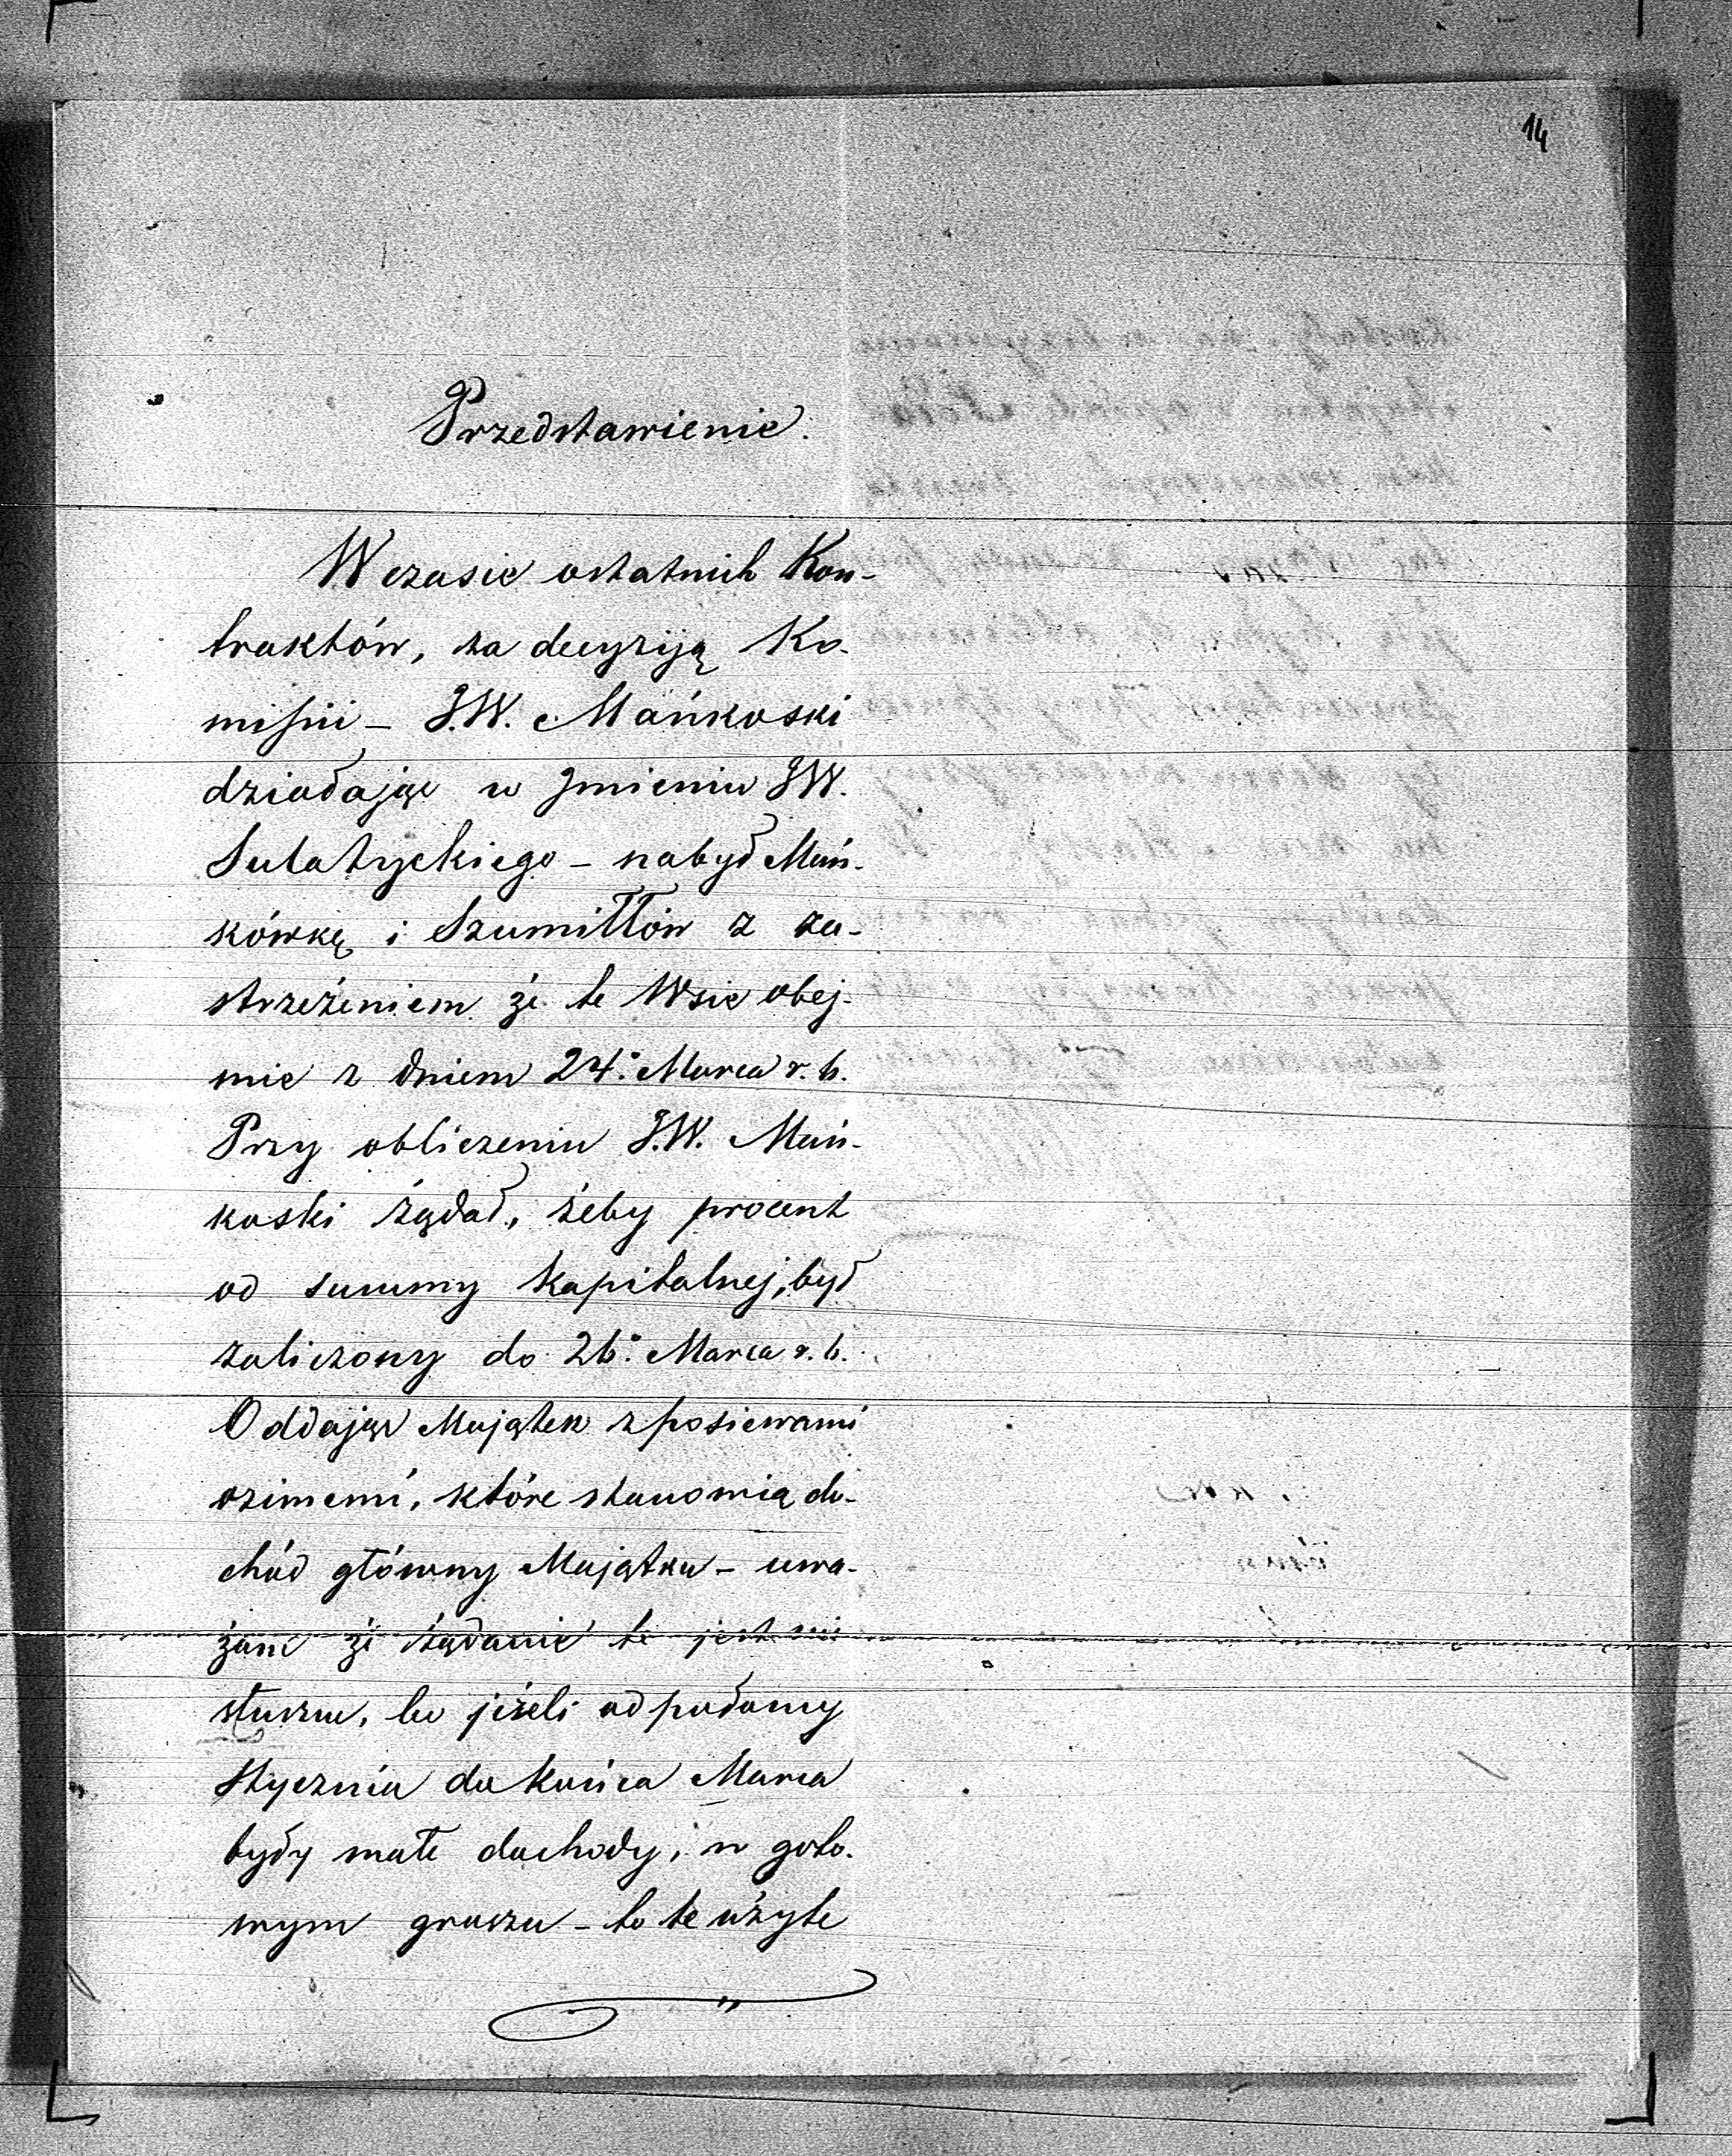 14
Przedstawienie.
W czasie ostatnich Kon-
traktów, za decyzyją Ko-
missii – J.W. Mańkoski
działając w Jmieniu JW.
Sulatyckiego – nabył Mań-
kówkę i Szumiłłów z za-
strzeżeniem że te Wsie obej-
mie z dniem 24: Marca r. b.
Przy obliczeniu J.W. Mań-
koski żądał, żeby procent
od summy kapitalnej, był
zaliczony do 26: Marca r. b.
Oddając Majątek z posiewami
ozimemi, które stanowią do-
chód główny Majątku – uwa-
żam że żądanie te jest nie
słuszne, bo jeżeli od połowy
Stycznia do Końca Marca
były małe dochody, w goto-
wym groszu – to te użyte